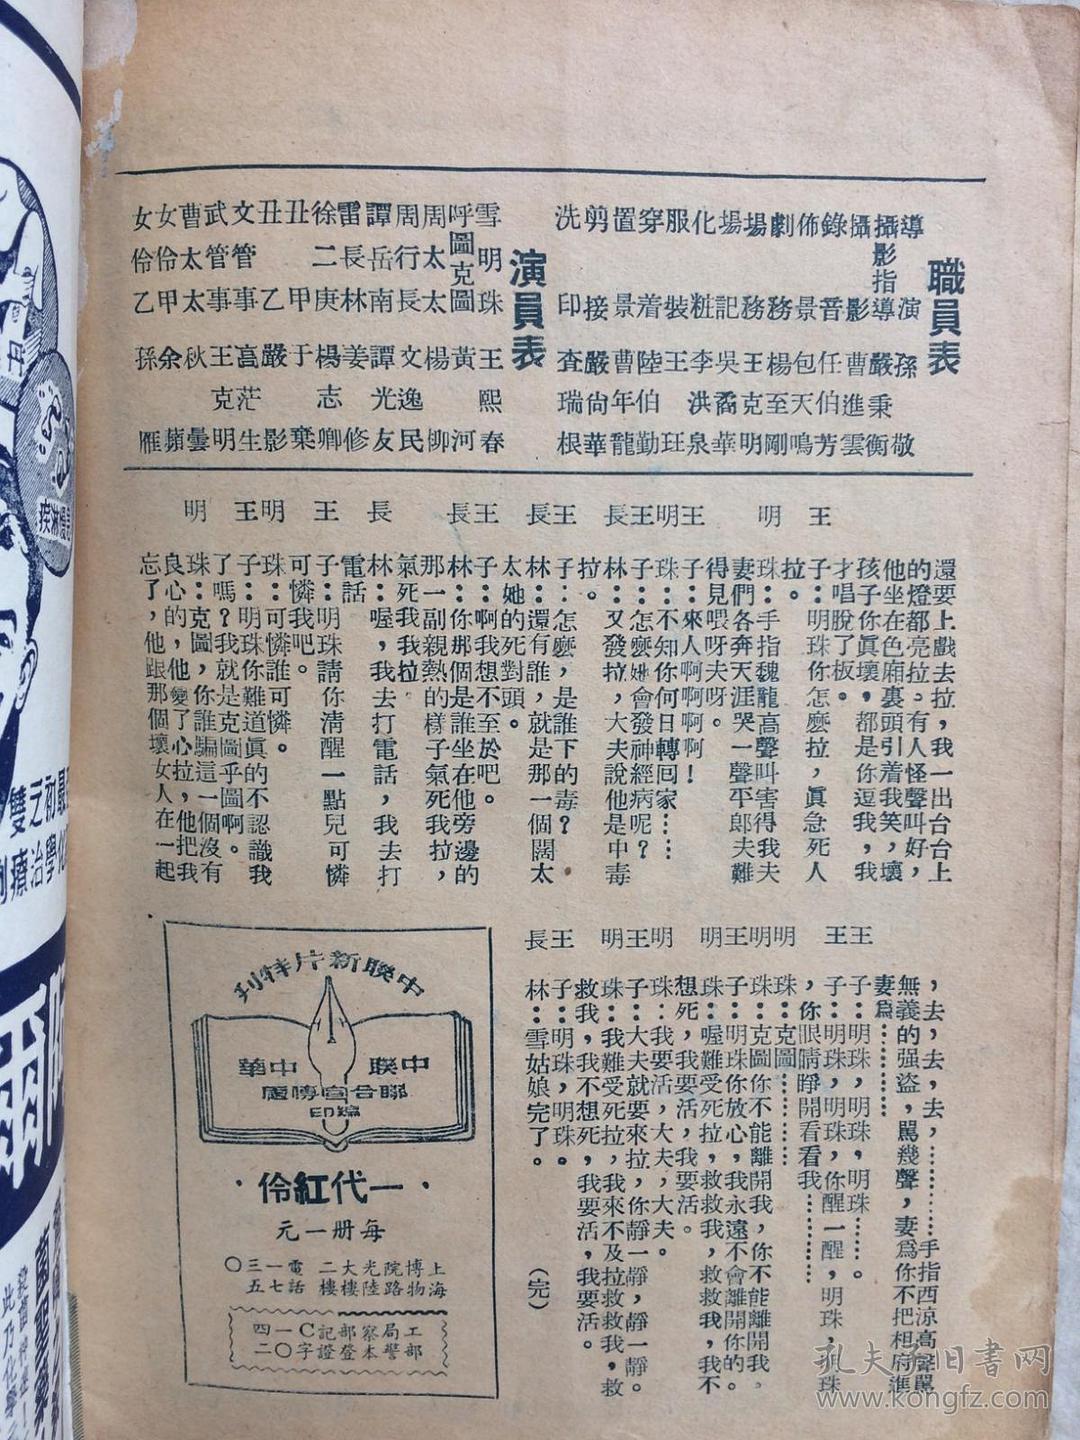 職員表
導演 孫敬
攝影指導 嚴秉衡
攝影 曹進雲
錄音 任伯芳
佈景 包天鳴
劇務 楊至剛
場務 王克明
場記 吳霱華
化粧 李洪泉
服裝 王班
穿着 陸伯勤
置景 曹年龍
剪接 嚴尙華
洗印 查瑞根
演員表
雪明珠 王熙春
呼圖克圖 黃河
周太太 楊柳
周行長 文逸民
譚岳南 譚光友
雷長林 姜修
徐二庚 楊志卿
丑甲 于棄
丑乙 嚴影
文管事 萬茫生
武管事 王克明
曹太太 秋曇
女伶甲 余蘋
女伶乙 孫雁
還要上戲去拉，我一出台台上
的燈都亮拉。有人怪聲叫好，
他坐在色廂裏頭引着我笑，壞
孩子你眞壞，都是你逗我，我
才唱脫了板。
王子：明珠你怎麼拉，眞急死人
拉。
明珠：手指魏龍高聲叫害得我夫
妻們各奔天涯哭一聲平郎夫難
得見喂呀夫呀。
王子：來人啊啊啊！
明珠：不知你何日轉回家……
王子：怎麼她會發神經病呢？
長林：又發拉，大夫說他是中毒
拉。
王子：怎麼，是誰下的毒？
長林：還有誰，就是那一個闊太
太她的死對頭。
王子：啊我想不至於吧。
長林：你那個是誰坐在他旁邊的
那一副親熱的樣子氣死我拉，
氣死我我拉
長林：喔，我去打電話，我去打
電話
王子：明珠請你清醒一點兒可憐
可憐我吧。
明珠：可憐誰可憐。
王子：明珠你難道眞的不認識我
了嗎？我就是克圖乎圖啊。
明珠：克圖，你誰騙這一個沒有
良心的，他變了心拉，他把我
忘了，他跟那個壞女人在一起
，去，去，去，…………手指西涼高聲罵
無義的强盜，罵幾聲，妻爲你不把相府進
妻爲…………
王子：明珠，明珠，明珠……。
王子：明珠，明珠，你醒一醒，明珠，明珠
，你眼睛睜開看看我…………
明珠：克圖…………
明珠：克圖你不能離開我，你不能離開我。
王子：明珠你放心，我永遠不會離開你的。
明珠：喔難受死拉，救救我，救救我，我不
想死，我要活，我要活。
明珠：我要活，大夫，大夫。
王子：大夫就要來拉，你靜一靜，靜一靜。
明珠：我難受死拉，我來不及拉救救我，救
救我，我不想死，我要活，我要活。
王子：明珠，明珠。
長林：雪姑娘完了。 （完）
中聯新片特刊
中聯 中華
聯合宣傳處
編印
·一代紅伶·
每册一元
上海博物院路光陸大樓二樓
電話一七三五〇
工部局警察部本登記證C字一〇四二
雙之初最
孔夫子旧书网
www.kongfz.com